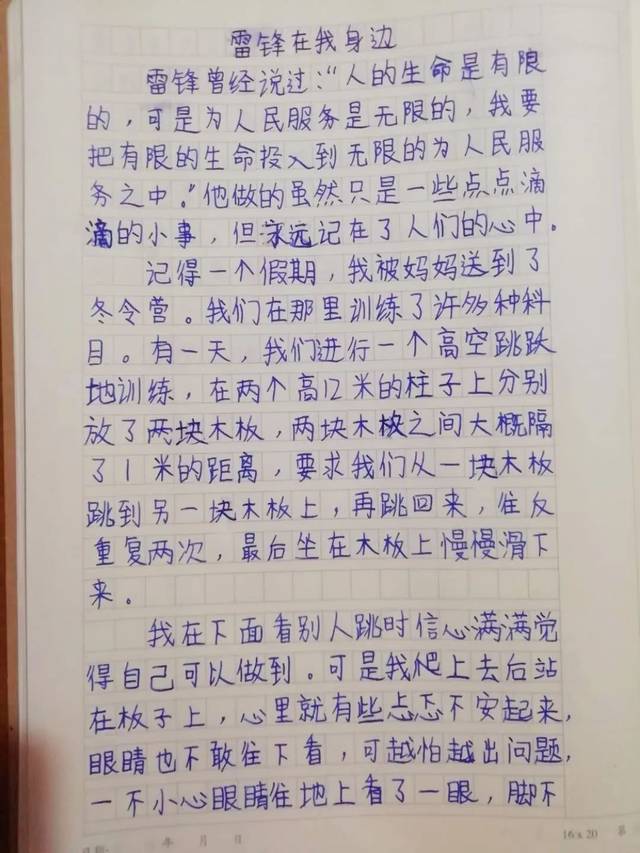 雷锋在我身边
雷锋曾经说过:“人的生命是有限
的，可是为人民服务是无限的，我要
把有限的生命投入到无限的为人民服
务之中。”他做的虽然只是一些点点滴
滴的小事，但永远记在了人们的心中。
记得一个假期，我被妈妈送到了
冬令营。我们在那里训练了许多种科
目。有一天，我们进行一个高空跳跃
地训练，在两个高12米的柱子上分别
放了两块木板，两块木板之间大概隔
了1米的距离，要求我们从一块木板
跳到另一块木板上，再跳回来，往反
重复两次，最后坐在木板上慢慢滑下
来。
我在下面看别人跳时信心满满觉
得自己可以做到。可是我爬上去后站
在板子上，心里就有些忐忑不安起来，
眼睛也不敢往下看，可越怕越出问题，
一不小心眼睛往地上看了一眼，脚不
日期: 年 月 日 16×20 第